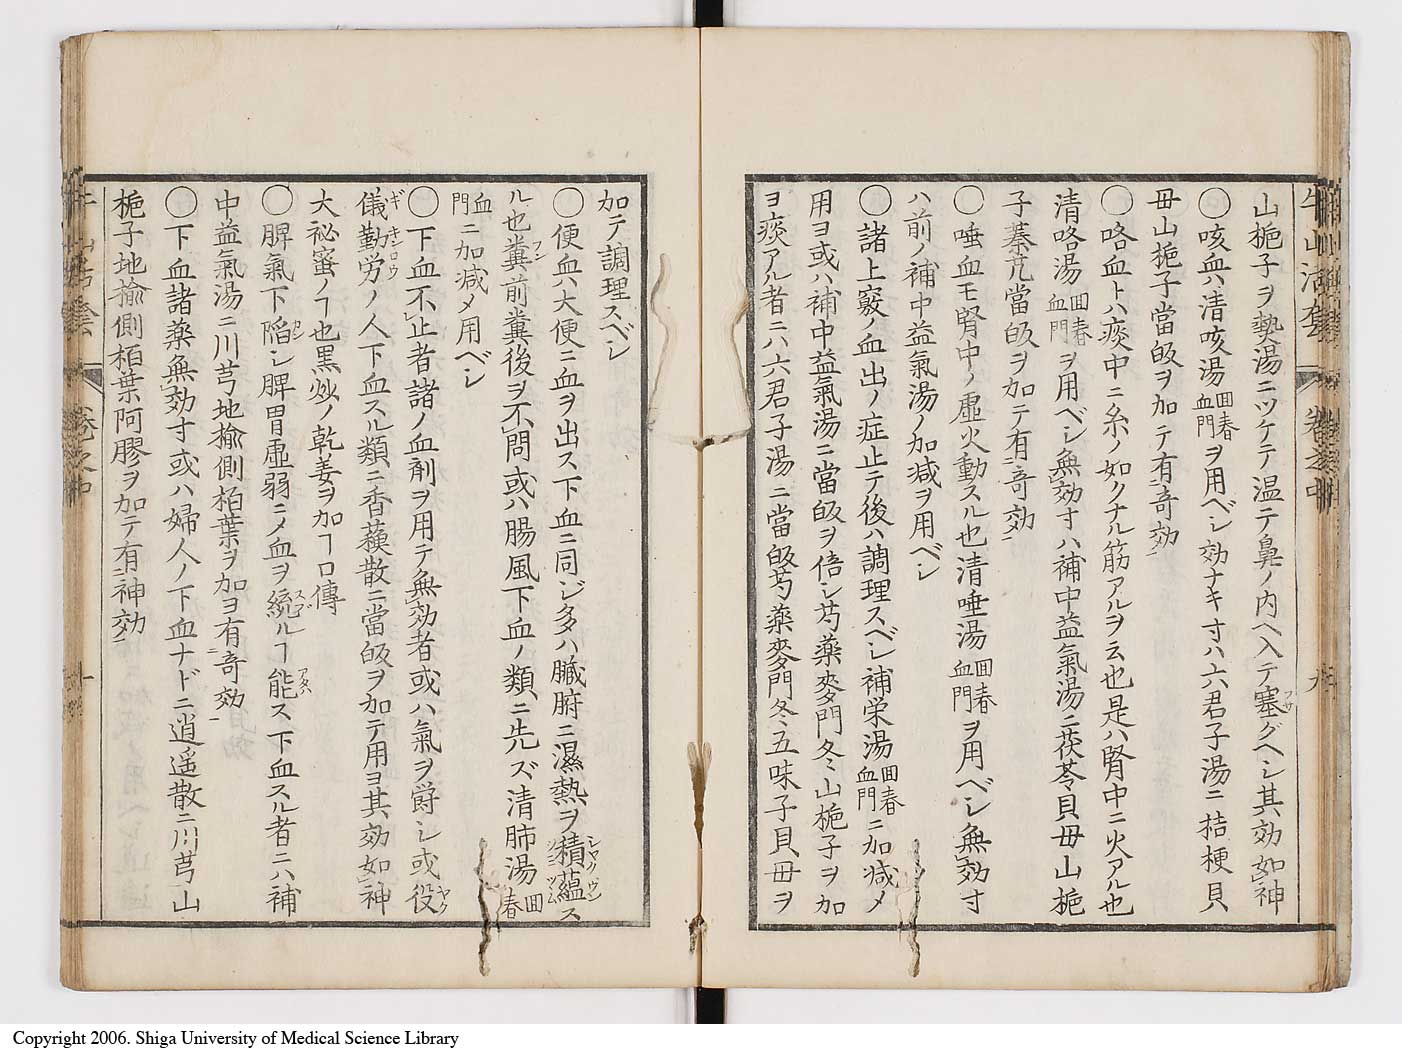 山梔子ヲ𤍠湯ニツケテ温テ鼻ノ内ヘ入テ塞グヘシ其効如神
○咳血ハ清咳湯回春血門ヲ用ベシ効ナキ寸ハ六君子湯ニ桔梗貝
毋山梔子當皈ヲ加テ有竒効
○咯血トハ痰中ニ糸ノ如クナル筋アルヲ云也是ハ腎中ニ火アル也
清咯湯回春血門ヲ用ベシ無効寸ハ補中益氣湯ニ茯苓貝毋山梔
子蓁艽當皈ヲ加テ有竒効
○唾血モ腎中ノ虚火動スル也清唾湯回春血門ヲ用ベシ無効寸
ハ前ノ補中益氣湯ノ加减ヲ用ベシ
○諸上竅ノ血出ノ症止テ後ハ調理スベシ補栄湯回春血門ニ加减メ
用ヨ或ハ補中益氣湯ニ當皈ヲ倍シ芍藥麥門冬山梔子ヲ加
ヨ痰アル者ニハ六君子湯ニ當皈芍藥麥門冬五味子貝毋ヲ
牛山活套 卷之中 九
加テ調理スベシ
○便血ハ大便ニ血ヲ出ス下血ニ同ジ多ハ臟腑ニ濕熱ヲ積蘊ス
ル也糞前糞後ヲ不問或ハ腸風下血ノ類ニ先ズ清肺湯回春
血門ニ加减メ用ベシ
○下血不止者諸ノ血剤ヲ用テ無効者或ハ氣ヲ爵シ或役
儀勤労ノ人下血スル類ニ香薷散ニ當皈ヲ加テ用ヨ其効如神
大祕蜜ノヿ也黒炒ノ乾姜ヲ加ヿ口傳
○脾氣下陷シ脾胃虚弱ニメ血ヲ統ルヿ能ス下血スル者ニハ補
中益氣湯ニ川芎地楡側栢葉ヲ加ヨ有竒効
○下血諸薬無効寸或ハ婦人ノ下血ナドニ逍遥散ニ川芎山
梔子地楡側栢葉阿膠ヲ加テ有神効
Copyright 2006. Shiga University of Medical Science Library